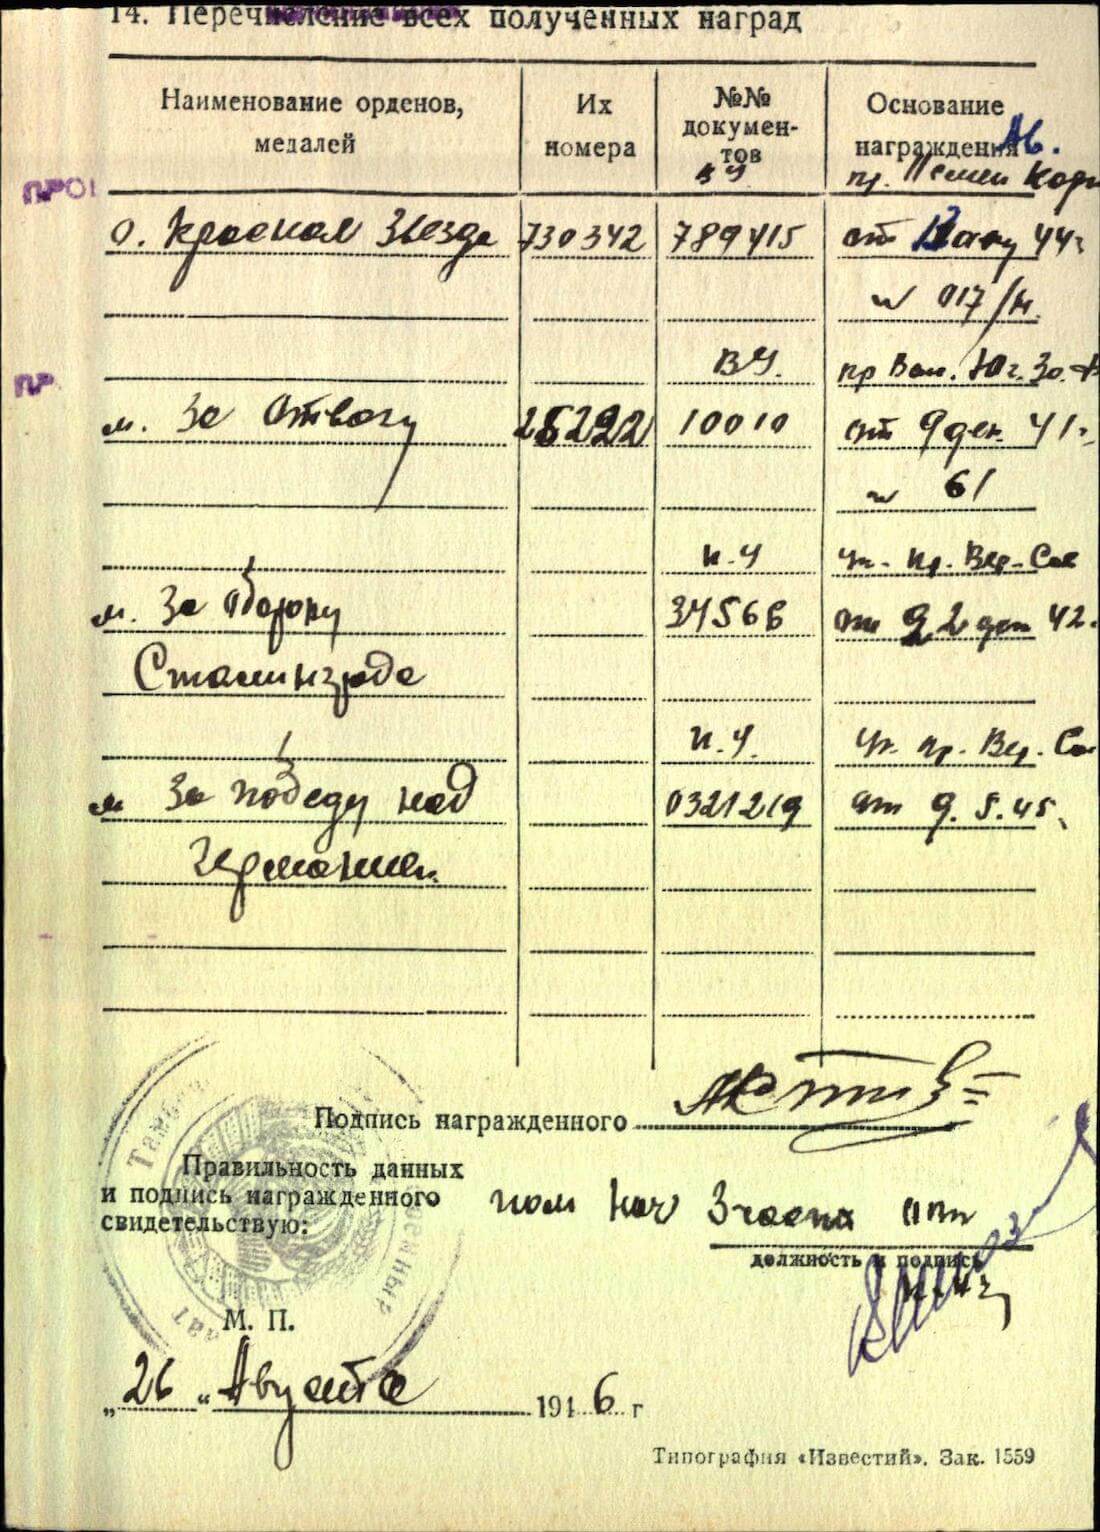 14. Перечисление всех полученных наград
Наименование орденов, медалей
Их номера
№№ документов
Основание награждения
ПРО
ВУ
пр.
о. Красная Звезда 730342 789415 от 44г
№ 017/н.
ПР
ВУ. пр
м. За Отвагу 10010 от 9 дек. 41г.
№ 61
н.У Ук. Пр. Вер. Сов
м. За оборону 34566 от 22 дек 42.
Сталинграда
н.У. Ук. пр. Вер. Сов
м За победу над 0321219 от 9.5.45.
Германией.
Подпись награжденного
Правильность данных
и подпись награжденного
свидетельствую:
пом Нач 3 части
должность и подпись
М. П.
„26 “ Августа 1946 г
Типография «Известий». Зак. 1559